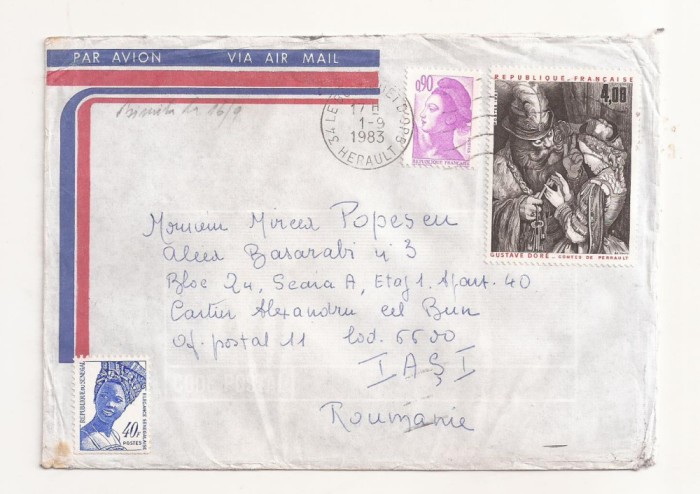 PAR AVION VIA AIR MAIL
0,90
REPUBLIQUE FRANÇAISE
RÉPUBLIQUE FRANÇAISE
4,00
GUSTAVE DORÉ _ CONTES DE PERRAULT
34 LE BOUSQUET D'ORB
17 H
1-9
1983
HERAULT
16/9
Monsieur Mircea Popescu
Aleea Basarabi n° 3
Bloc 24, Scara A, Etaj 1. Apart. 40
Cartier Alexandru cel Bun
Of. postal 11 Cod. 6600
IAŞI
Roumanie
REPUBLIQUE DU SENEGAL
ELEGANCE SENEGALAISE
40F
POSTES